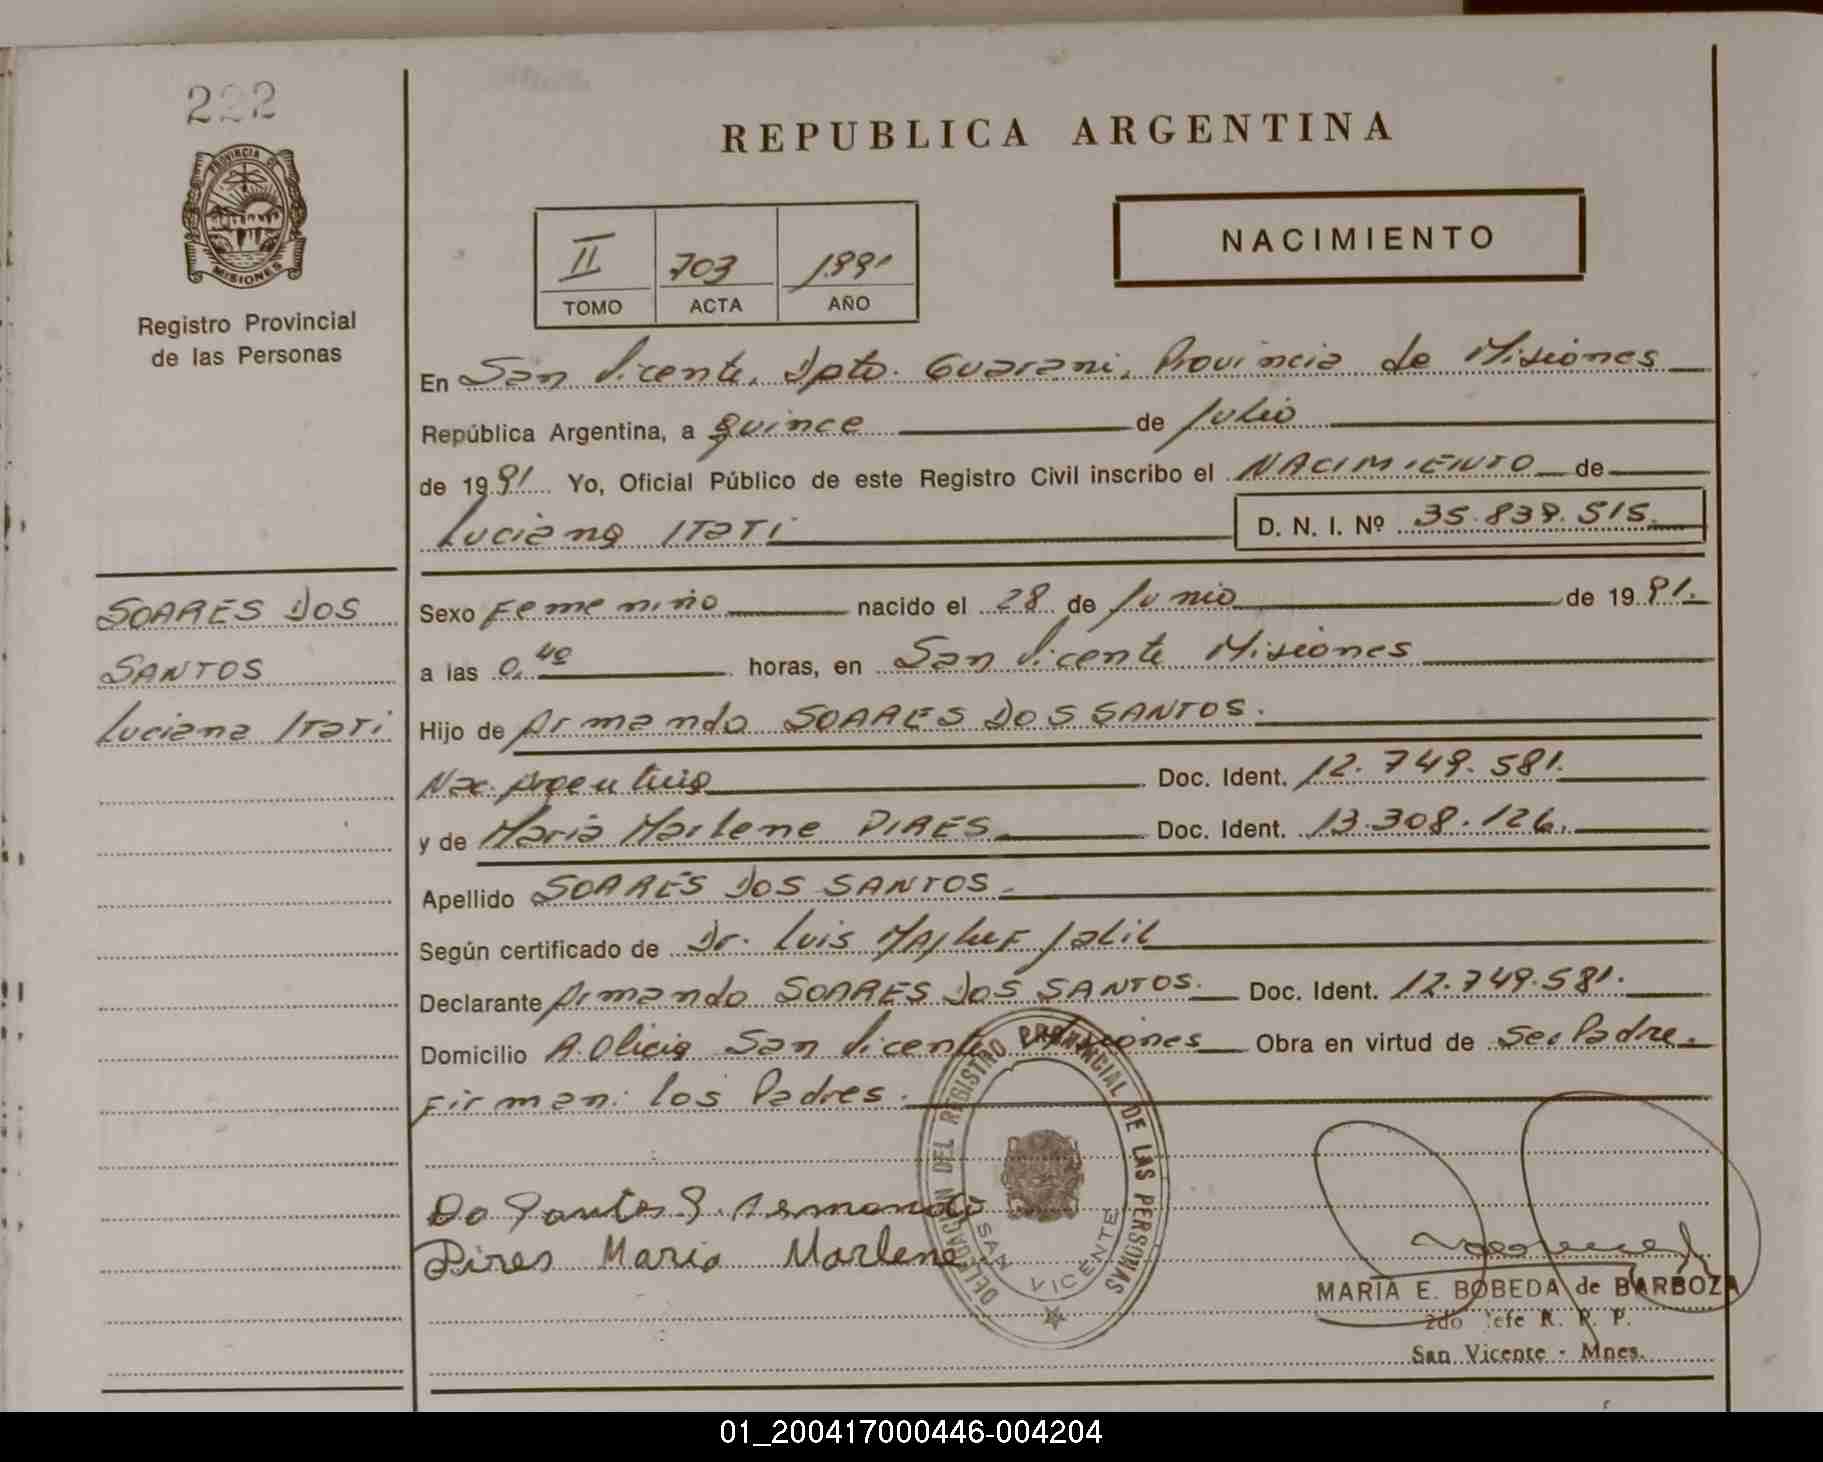 222
PROVINCIA DE
MISIONES
Registro Provincial
de las Personas
REPUBLICA ARGENTINA
II 703 1991
TOMO ACTA AÑO
NACIMIENTO
En San Vicente, Dpto. Guarani, Provincia de Misiones
República Argentina, a quince de Julio
de 1991 Yo, Oficial Público de este Registro Civil inscribo el NACIMIENTO de
Luciana Itati D. N. I. Nº 35.839.515.
SOARES DOS
SANTOS
Luciana Itati
Sexo Femenino nacido el 28 de Junio de 1991.
a las 0,40 horas, en San Vicente Misiones
Hijo de Armando SOARES DOS SANTOS.
Nac. argentino Doc. Ident. 12.749.581.
y de Maria Marlene PIRES Doc. Ident. 13.308.126.
Apellido SOARES DOS SANTOS.
Según certificado de Dr. Luis Jalil
Declarante Armando SOARES DOS SANTOS. Doc. Ident. 12.749.581.
Domicilio San Vicente Misiones Obra en virtud de Ser Padre.
Firman: los Padres.
Do Santos S. Armando
Pires Maria Marlene
DELEGACION DEL REGISTRO PROVINCIAL DE LAS PERSONAS
SAN VICENTE
MARIA E. BOBEDA de BARBOZA
2do Jefe R. P. P.
San Vicente - Mnes.
01_200417000446-004204